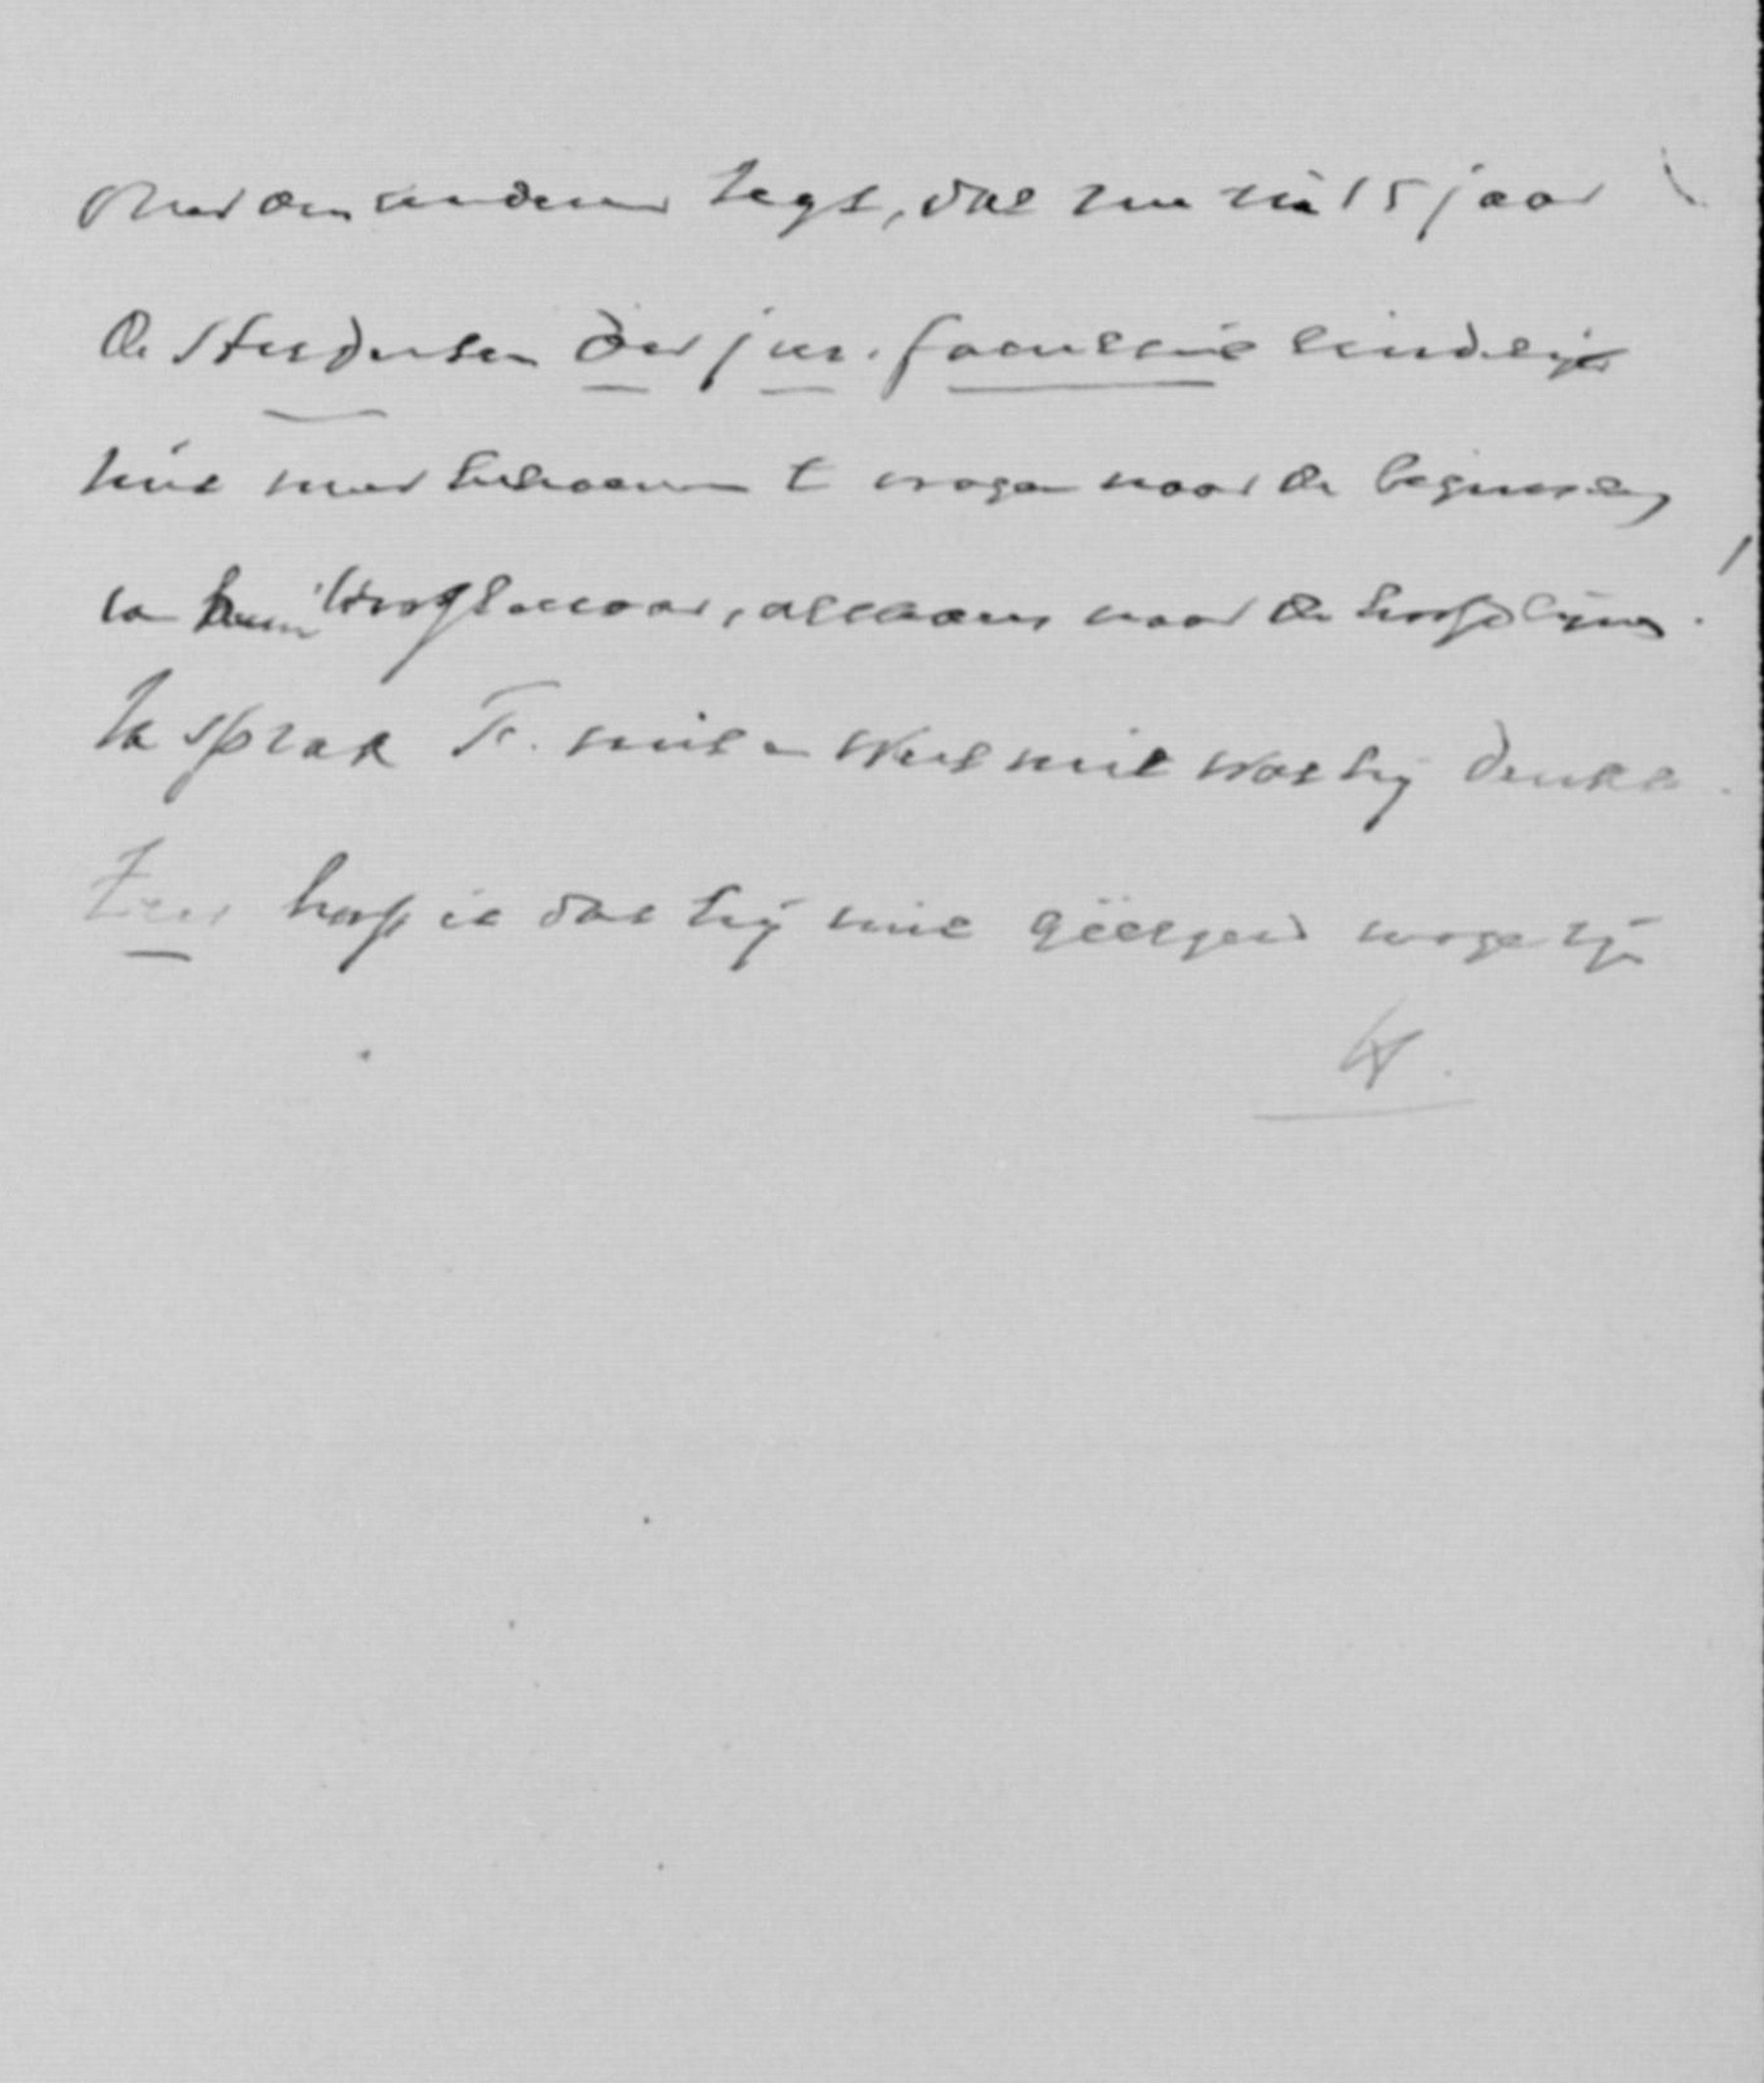 zegt, dat nu na 15 jaar
de studenten der jur. faculteit eindelijk
niet meer behoeven te vragen naar de beginselen
van hun hoogleeraar, althans naar de hoofdlijnen.
Ik sprak F. niet en weet niet wat hij denkt.
Zeer hoop ik dat hij niet geërgerd moge zijn